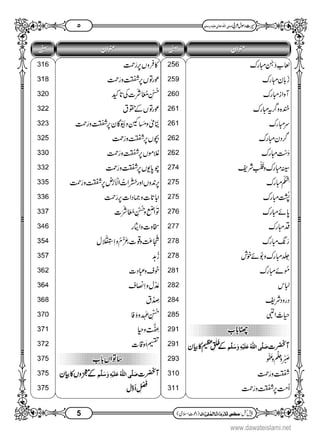 سیرتِ رسولِ عربی صلی اللہ تعالیٰ علیہ وسلم
۵
عنوان صفحہ عنوان صفحہ
لعابِ دہن مبارک 256
زبان مبارک 259
آواز مبارک 260
خندہ و گریہ مبارک 261
سرمبارک 261
گردن مبارک 262
دستِ مبارک 262
سینۂ مبارک و قلب شریف 274
شکم مبارک 275
پشتِ مبارک 275
پائے مبارک 276
قد مبارک 277
رنگ مبارک 278
جلد مبارک و بوئے خوش 278
موئے مبارک 281
لباس 282
درود شریف 284
حیات النبی 285
چھٹا باب 291
آنحضرت صَلَّی اللّٰہُ عَلَیْہِ وَسَلَّم کے خلق عظیم کا بیان 291
صبر و حلم و عفو 293
شفقت و رحمت 310
اُمت پر شفقت و رحمت 311
کافروں پر رحمت 316
عورتوں پر شفقت و رحمت 318
حسن معاشرت کی تاکید 320
عورتوں کے حقوق 322
یتامٰی و مساکین و بیوگان پر شفقت و رحمت 323
بچوں پر شفقت و رحمت 325
غلاموں پر شفقت و رحمت 330
چوپایوں پر شفقت و رحمت 332
پرندوں اور حشرات الارض پر شفقت و رحمت 335
نباتات و جمادات پر رحمت 336
تواضع و حسن معاشرت 337
سخاوت و ایثار 346
شجاعت و قوت و عزم و استقلال 354
زہد 357
خوف و عبادت 362
عدل و انصاف 364
صدق 368
حسن عہد و وفا 370
عفت و حیا 371
تقسیم اوقات 372
ساتواں باب 375
آنحضرت صَلَّی اللّٰہُ عَلَیْہِ وَسَلَّم کے معجزوں کا بیان 375
فصل اوّل 375
5
www.dawateislami.net